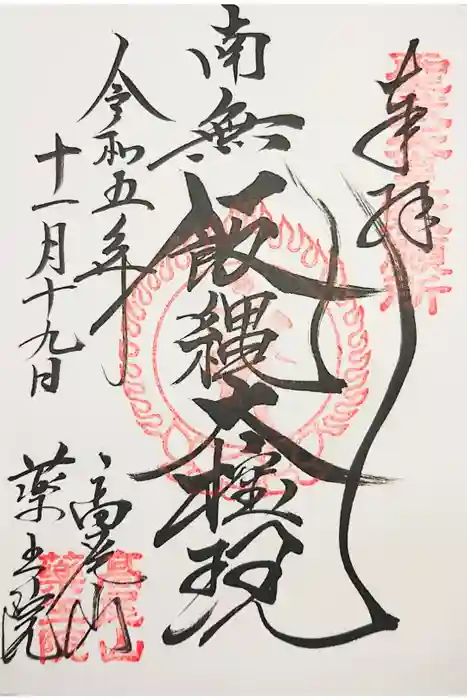 奉拝
南無飯縄大権現
令和五年
十一月十九日
高尾山
薬王院